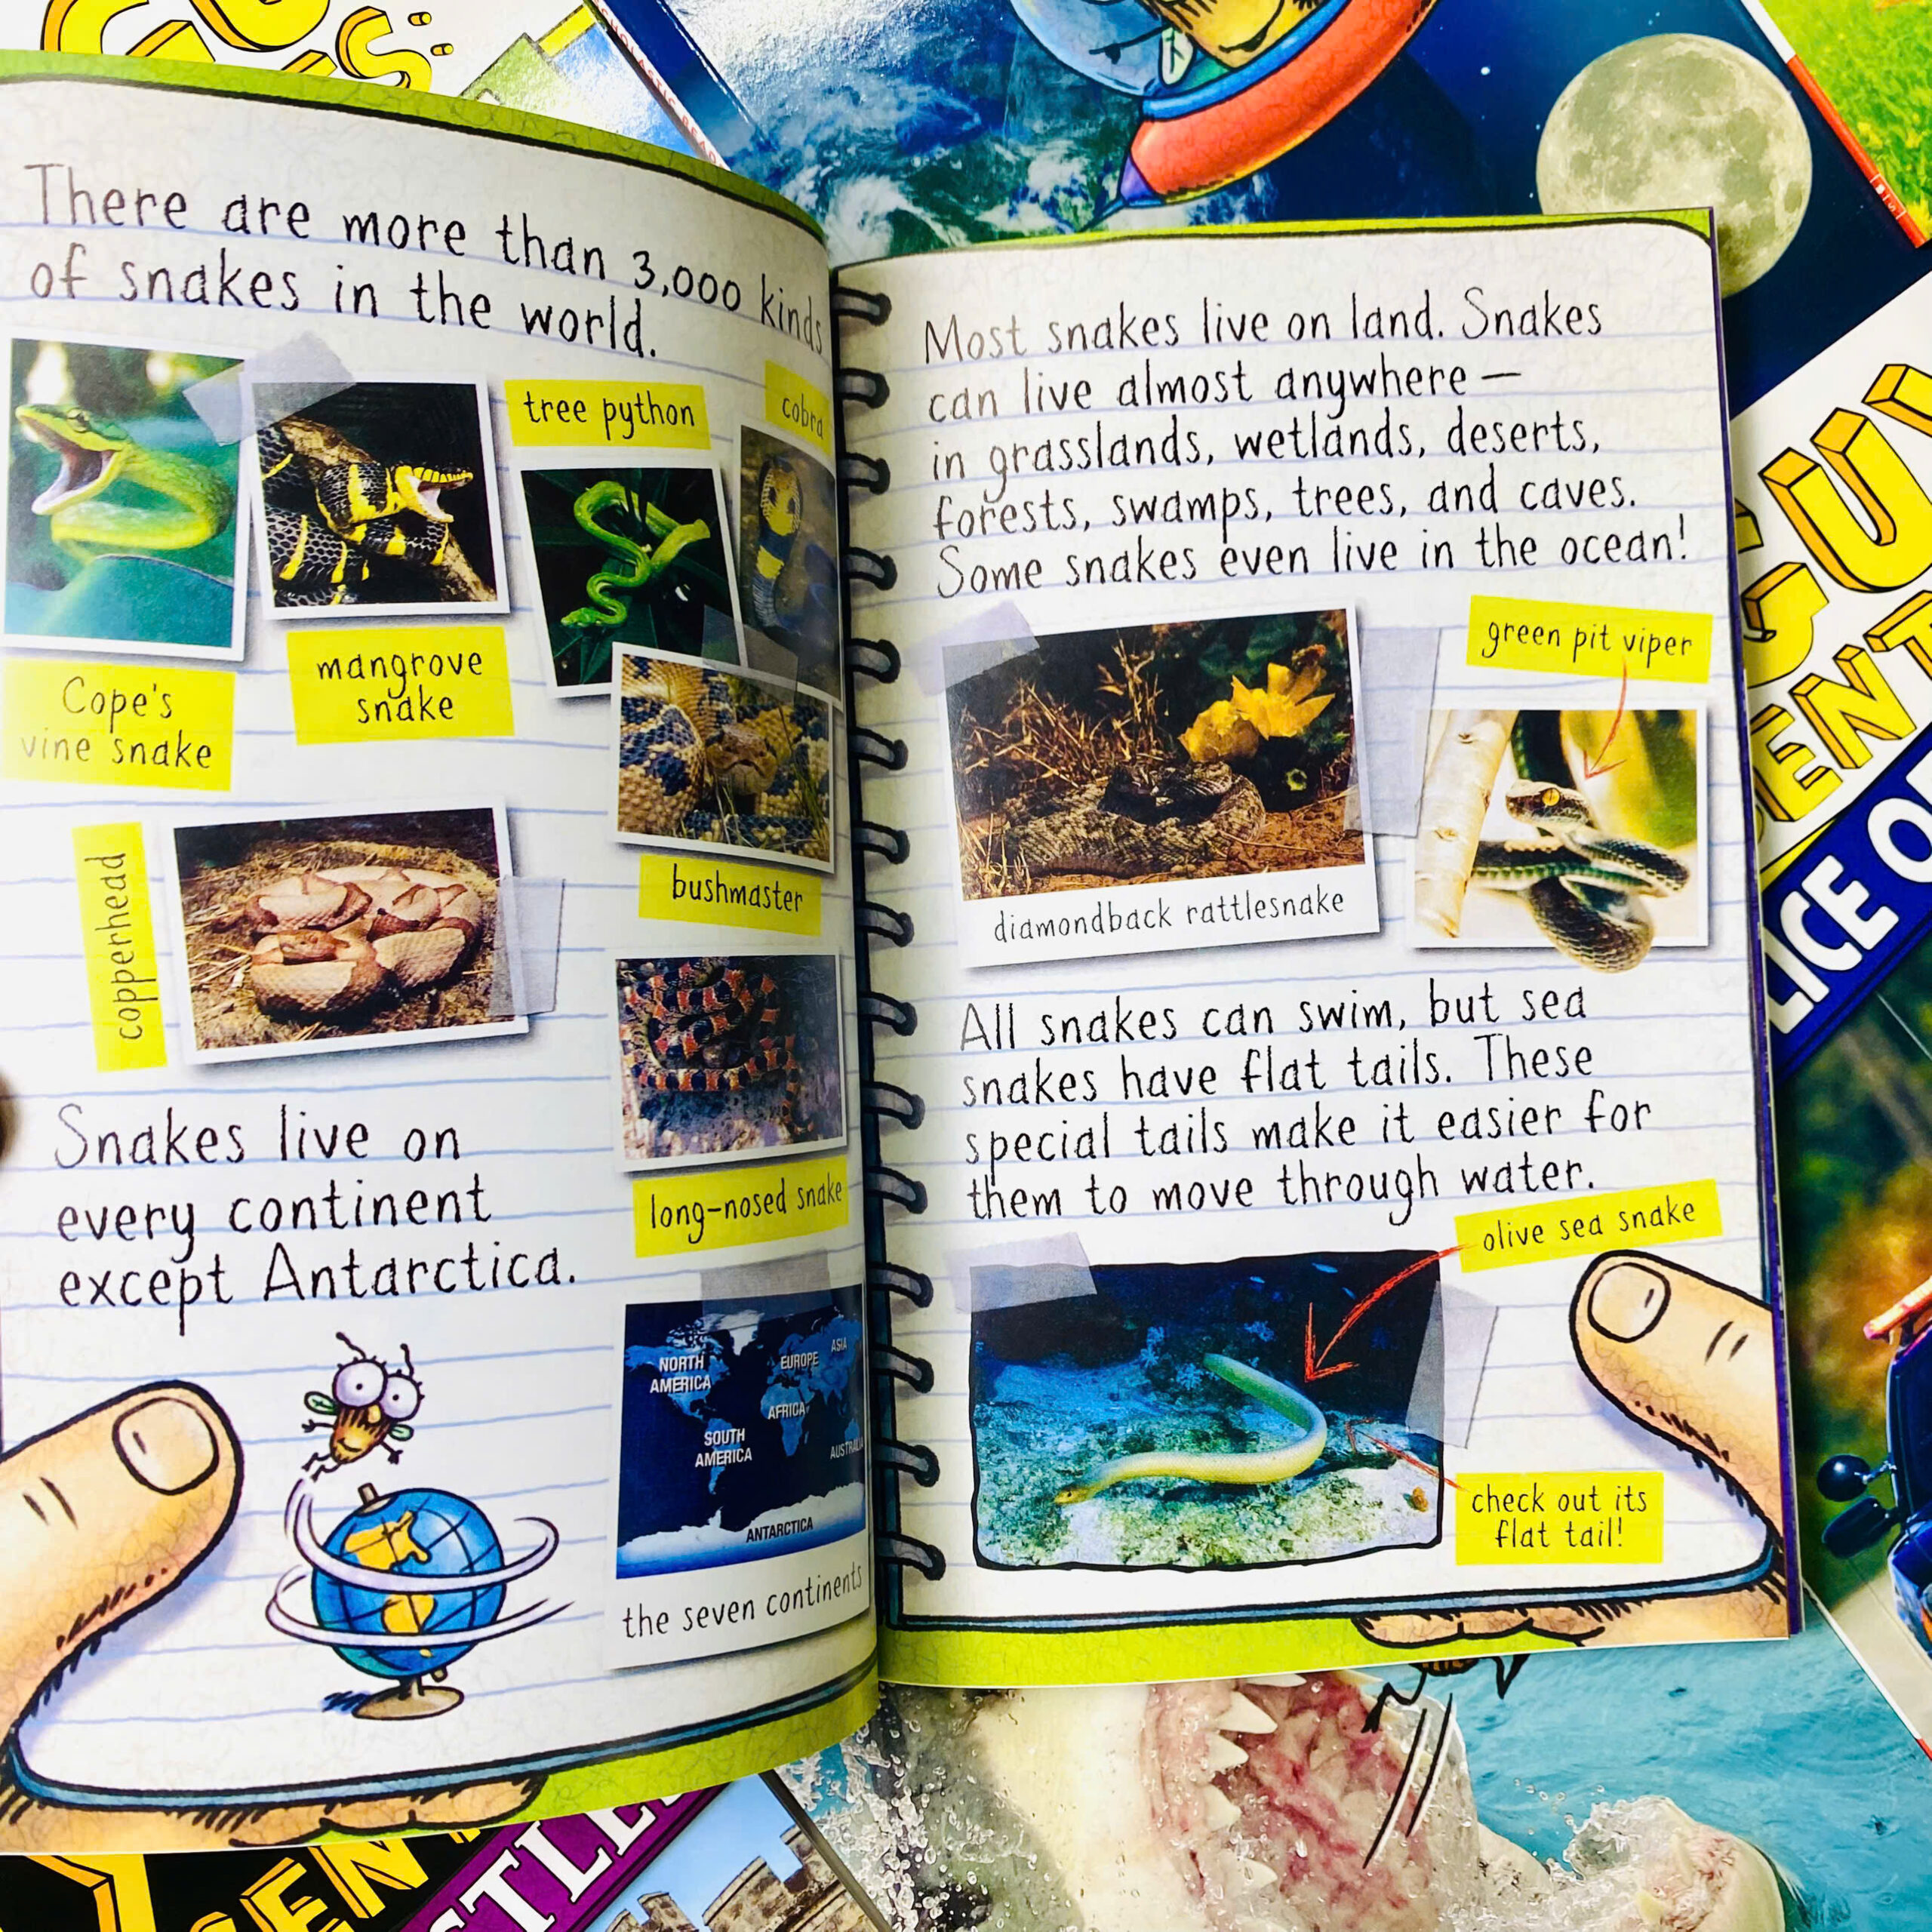 There are more than 3,000 kinds
of snakes in the world.
tree python
cobra
Cope's
vine snake
mangrove
snake
bushmaster
copperhead
long-nosed snake
Snakes live on
every continent
except Antarctica.
NORTH
AMERICA
EUROPE
ASIA
AFRICA
SOUTH
AMERICA
AUSTRALIA
ANTARCTICA
the seven continents
Most snakes live on land. Snakes
can live almost anywhere —
in grasslands, wetlands, deserts,
forests, swamps, trees, and caves.
Some snakes even live in the ocean!
green pit viper
diamondback rattlesnake
All snakes can swim, but sea
snakes have flat tails. These
special tails make it easier for
them to move through water.
olive sea snake
check out its
flat tail!
GUY